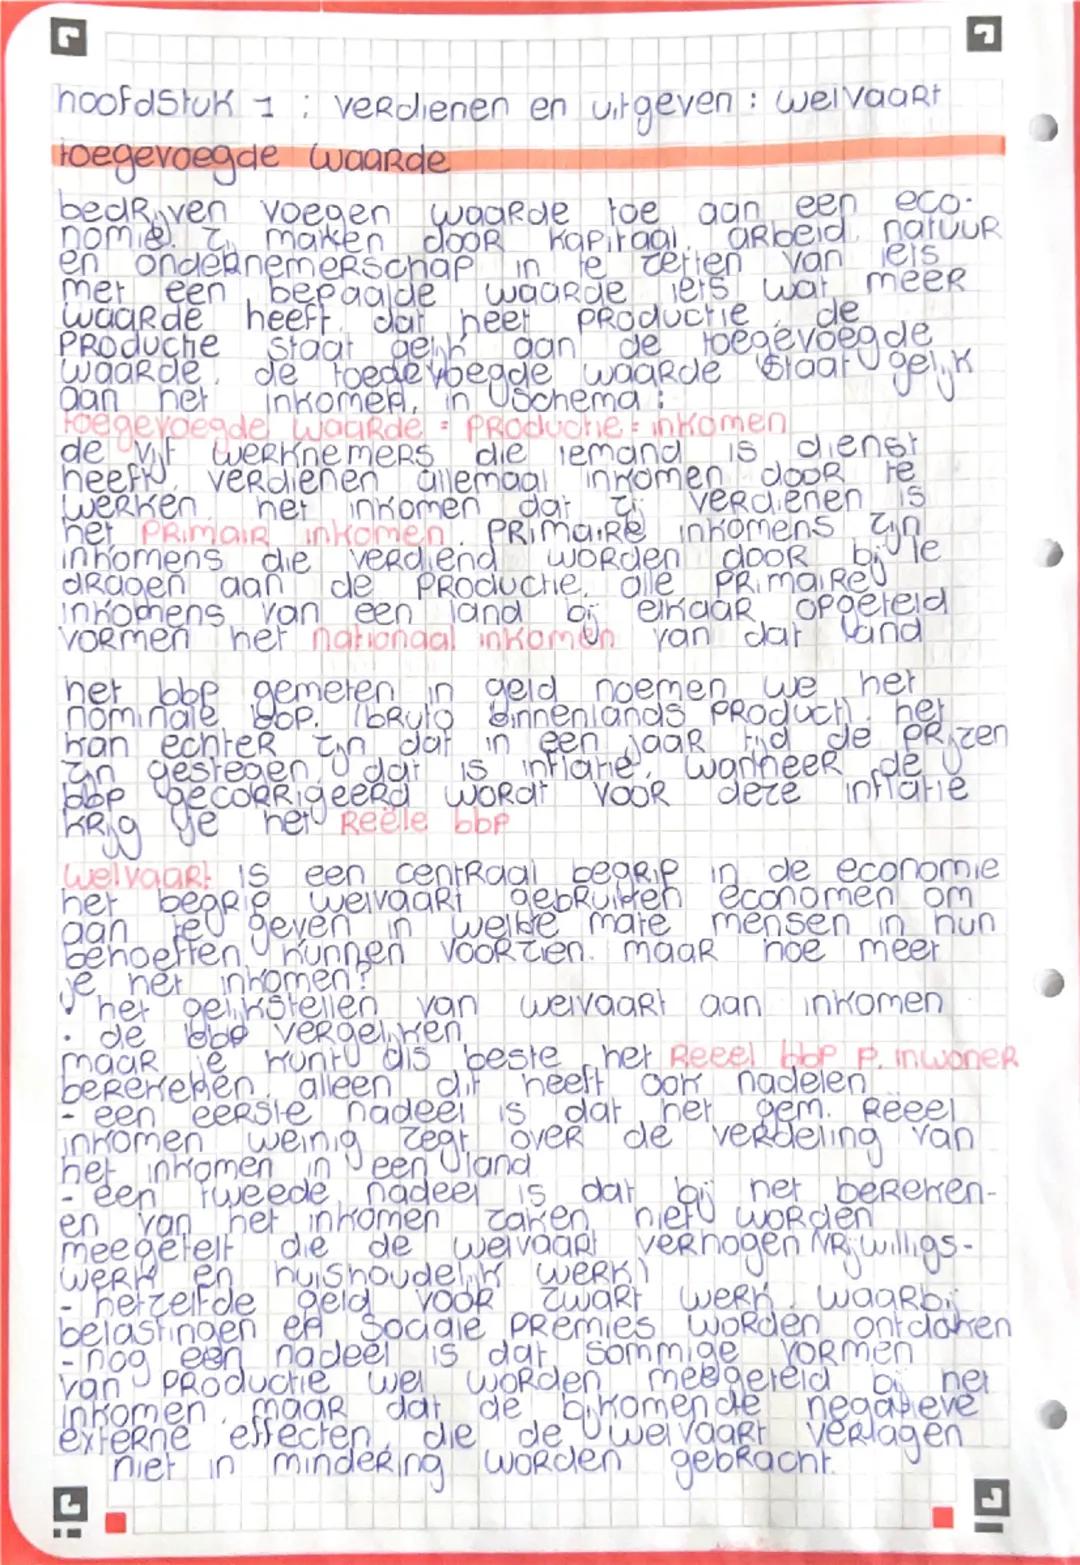 hoofdstuk 1 : verdienen en uitgeven : welvaart
toegevoegde waarde
bedrijven voegen waarde toe aan een eco-
nomie. zij maken door kapitaal, arbeid, natuur
en ondernemerschap in te zetten van iets
met een bepaalde waarde iets wat meer
waarde heeft. dat heet productie. de
productie staat gelijk aan de toegevoegde
waarde. de toegevoegde waarde staat gelijk
aan het inkomen. in schema :
toegevoegde waarde = productie = inkomen
de vijf werknemers die iemand is dienst
heeft, verdienen allemaal inkomen door te
werken. het inkomen dat zij verdienen is
het primair inkomen. primaire inkomens zijn
inkomens die verdiend worden door bij te
dragen aan de productie. alle primaire
inkomens van een land bij elkaar opgeteld
vormen het nationaal inkomen van dat land
het bbp gemeten in geld noemen we het
nominale bbp. (bruto binnenlands product). het
kan echter zijn dat in een jaar tijd de prijzen
zijn gestegen, dat is inflatie. wanneer de
bbp gecorrigeerd wordt voor deze inflatie
krijg je het reële bbp
welvaart is een centraal begrip in de economie
het begrip welvaart gebruiken economen om
aan te geven in welke mate mensen in hun
behoeften kunnen voorzien. maar hoe meet
je het inkomen?
• het gelijkstellen van welvaart aan inkomen
• de bbp vergelijken
maar je kunt dis beste het reeel bbp p. inwoner
berekenen. alleen dit heeft ook nadelen
- een eerste nadeel is dat het gem. reëel
inkomen weinig zegt over de verdeling van
het inkomen in een land
- een tweede nadeel is dat bij het bereken-
en van het inkomen zaken niet worden
meegetelt die de welvaart verhogen (vrijwilligs-
werk en huishoudelijk werk)
- hetzelfde geld voor zwart werk waarbij
belastingen en sociale premies worden ontdoken
- nog een nadeel is dat sommige vormen
van productie wel worden meegeteld bij het
inkomen, maar dat de bijkomende negatieve
externe effecten, die de welvaart verlagen
niet in mindering worden gebracht.